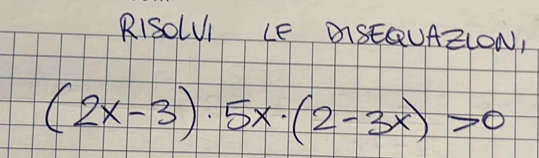 RISOLVI LE DISEQUAZIONI
(2x-3)·5x·(2-3x)>0